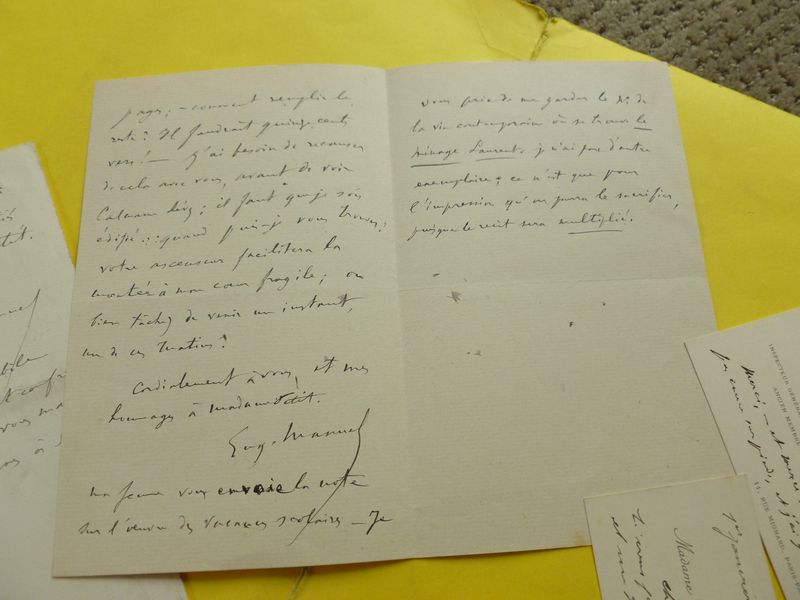 pages; – comment remplir le
reste? Il faudrait quinze cents
vers! – J'ai besoin de recauser
de cela avec vous, avant de voir
Calmann Lévy; il faut que je sois
édifié: quand puis-je vous trouver?
votre ascenseur facilitera la
montée à mon cœur fragile; ou
bien tâchez de venir un instant,
un de ces matins?
Cordialement à vous, et mes
hommages à madame
Eug. Manuel
Ma femme vous envoie la note
sur l'œuvre des vacances scolaires – Je
vous prie de me garder le No. de
la vie contemporaine où se trouve le
Ménage Laurent, je n'ai pas d'autre
exemplaire; ce n'est que pour
l'impression qu'on pourra le sacrifier,
puisque le récit sera multiplié.
INSPECTEUR GÉNÉR
ANCIEN MEMBRE
11, RUE MIGNARD, PARIS
merci, – et merci
Madame
et un